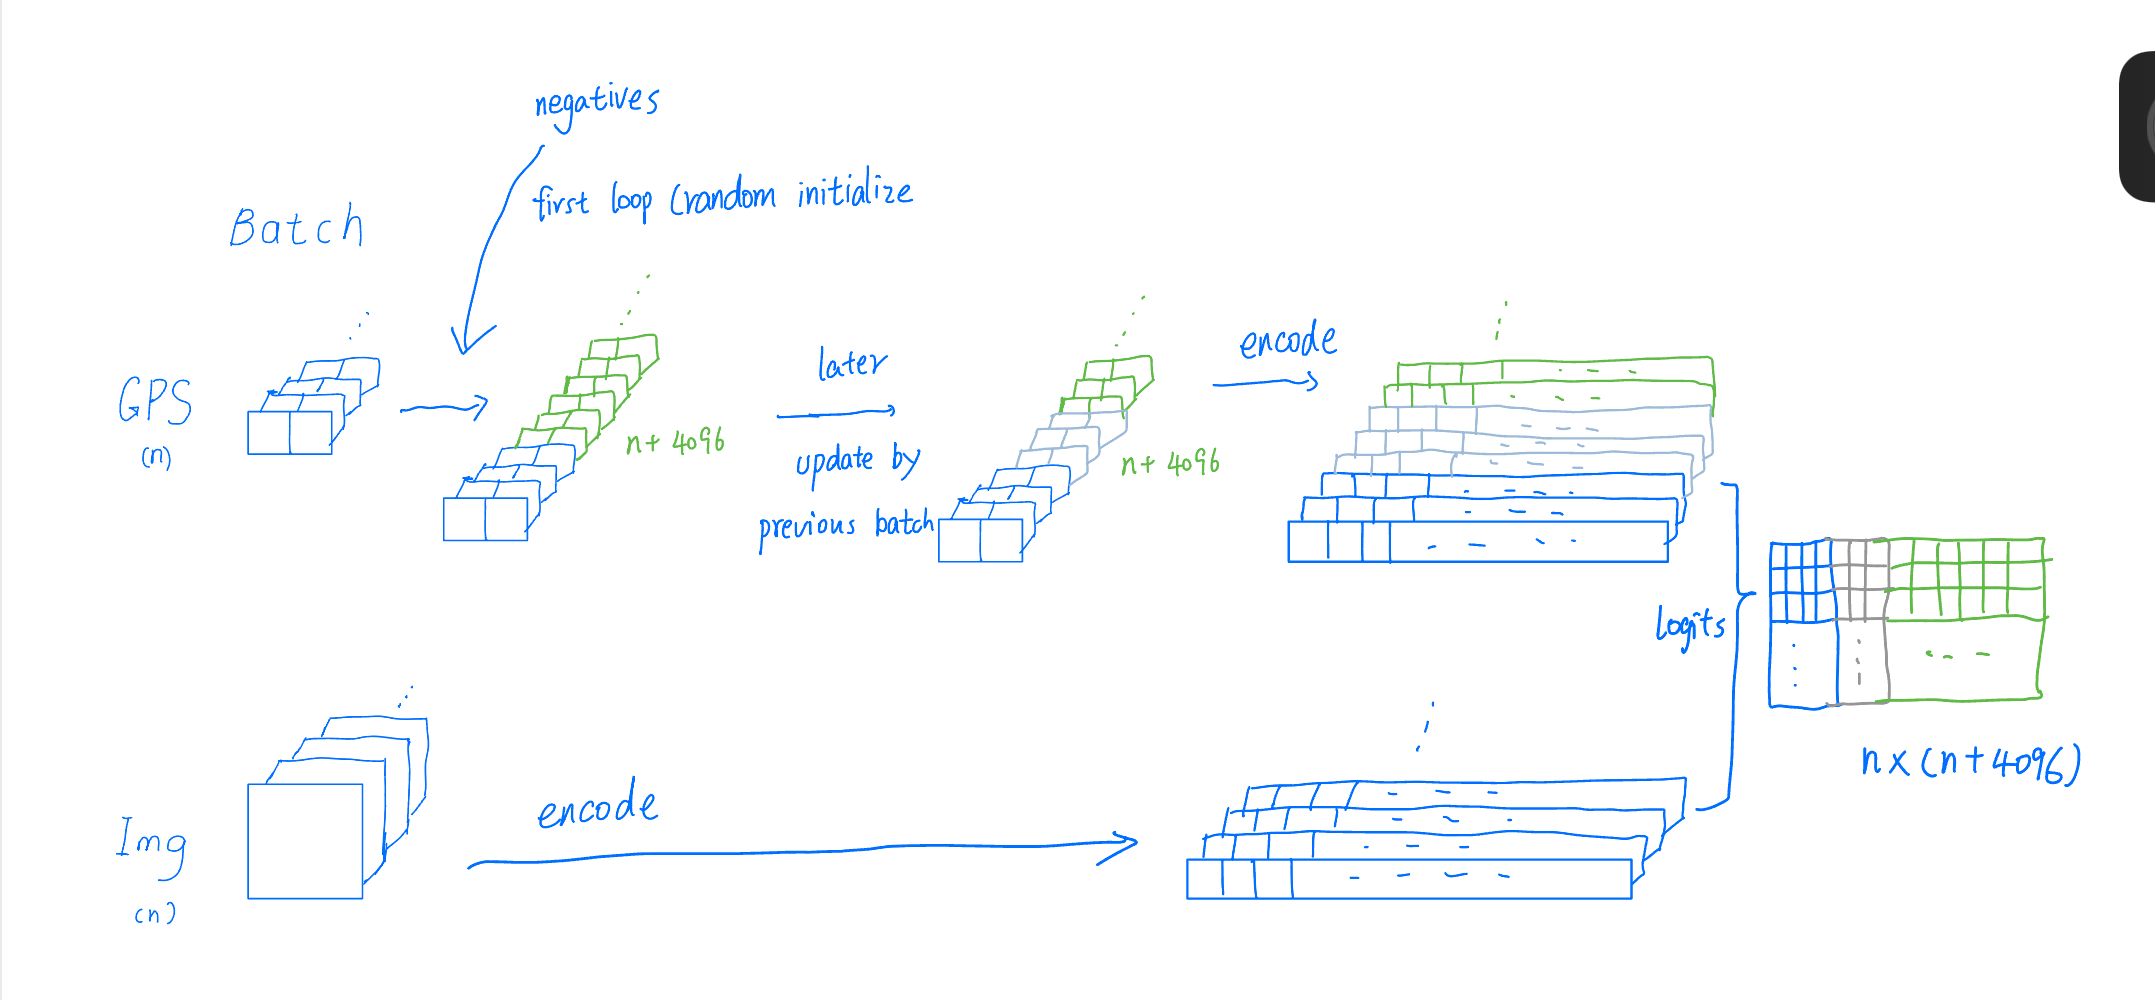 negatives
first loop (random initialize
Batch
GPS
(n)
n+ 4096
later
update by
previous batch
n+ 4096
encode
logits
n x (n+4096)
Img
(n)
encode